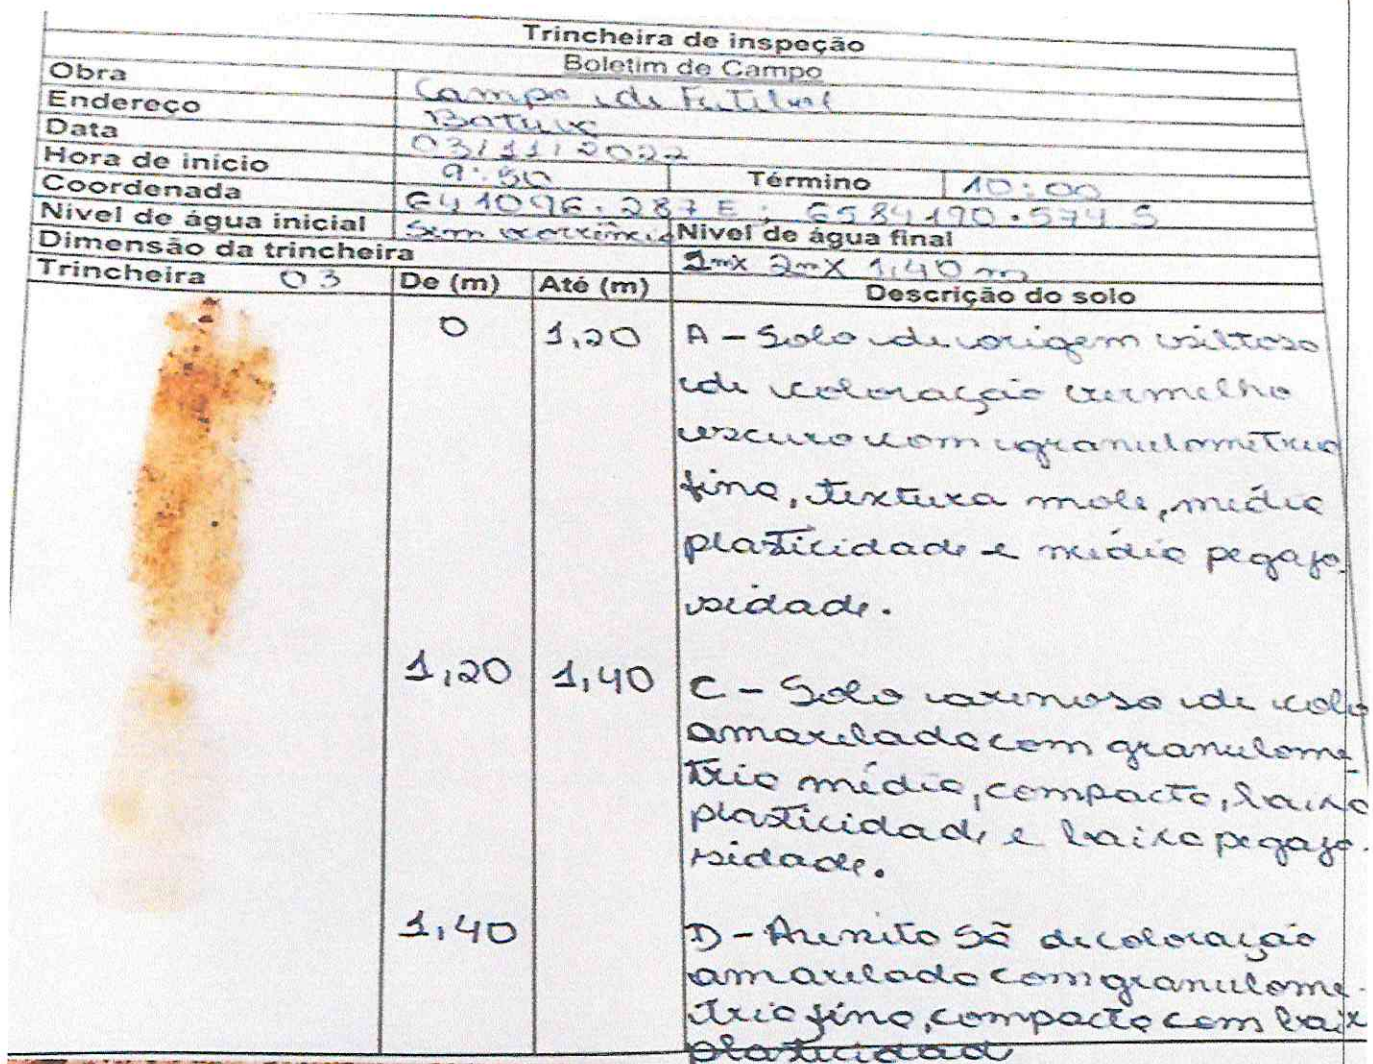 Trincheira de inspeção
Boletim de Campo
Obra Campo de Futebol
Endereço Batuva
Data 03/11/2022
Hora de início 9:50 Término 10:00
Coordenada 641096.287E; 6584190.574 S
Nivel de água inicial Sem ocorrência Nivel de água final
Dimensão da trincheira 1mX 2mX 1,40 m
Trincheira 03 De (m) Até (m) Descrição do solo
0 1,20 A - Solo de origem siltoso
de coloração vermelho
escuro com granulometria
fina, textura mole, média
plasticidade e média pegajo
sidade.
1,20 1,40 C - Solo arenoso de colo
amarelado com granulome
tria média, compacto, baixa
plasticidade e baixa pegajo-
sidade.
1,40 D - Arenito sã de coloração
amarelado com granulome-
tria fina, compacto com baix
plasticidad